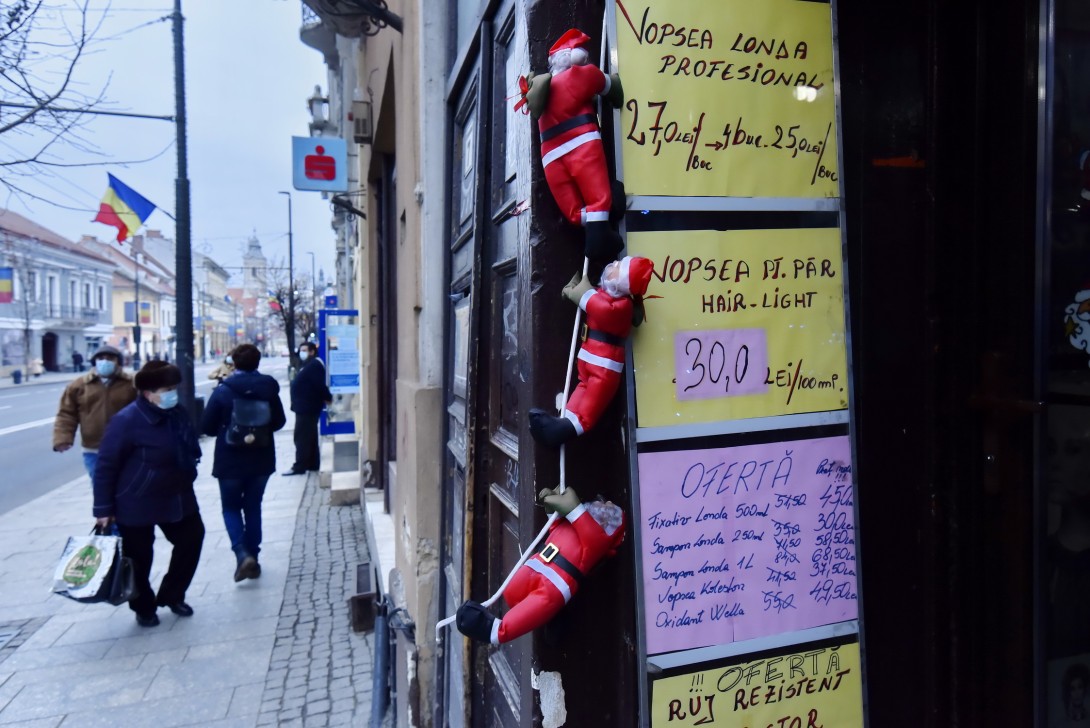 VOPSEA LONDA
PROFESIONAL
27,0 LEI/BUC → 4 buc. 25,0 LEI/BUC
VOPSEA PT. PĂR
HAIR-LIGHT
30,0 LEI/100 ml.
OFERTĂ
Fixativ Londa 500ml 57,50
Sampon Londa 250ml
Sampon Londa 1L
Vopsea Koleston
Oxidant Wella 49,50
!!! OFERTĂ
RUJ REZISTENT